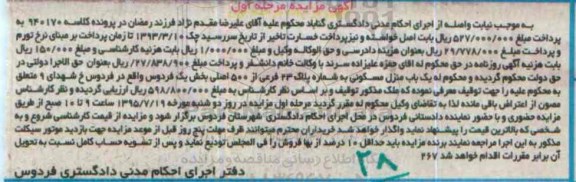 آگهی مزایده مرحله اول
به موجب نیابت واصله از اجرای احکام مدنی دادگستری گناباد محکوم علیه آقای علیرضا مقدم نژاد فرزند رمضان در پرونده کلاسه 940170 به
پرداخت مبلغ 527/000/000 ریال بابت اصل خواسته و نیز پرداخت خسارت تاخیر از تاریخ سررسید چک 1393/3/10 تا زمان پرداخت بر مبنای نرخ تورم
و پرداخت مبلغ 29/778/000 ریال بعنوان هزینه دادرسی و حق الوکاله وکیل و مبلغ 1/000/000 ریال بابت هزینه کارشناسی و مبلغ 150/000 ریال
بابت هزینه آگهی روزنامه در حق محکوم له آقای حمزه علیزاده سرند با وکالت خانم دانشفر و پرداخت مبلغ 27/838/900 ریال بعنوان حق الاجرا دولتی در
حق دولت محکوم گردیده و محکوم له یک باب منزل مسکونی به شماره پلاک 23 فرعی از 500 اصلی بخش یک فردوس واقع در فردوس خ شهدای 9 متعلق
به محکوم علیه را جهت توقیف معرفی نموده که ملک مذکور توقیف و بر اساس نظر کارشناس به مبلغ 598/800/000 ریال ارزیابی گردیده و نظر کارشناس
مصون از اعتراض باقی مانده لذا به تقاضای وکیل محکوم له مقرر گردید مرحله اول مزایده در روز دو شنبه مورخه 1395/7/19 ساعت 9 تا 10 صبح از طریق
مزایده حضوری و با حضور نماینده دادستانی فردوس در محل اجرای احکام دادگستری شهرستان فردوس برگزار شود و مزایده از قیمت کارشناسی شروع و به
شخصی که بالاترین قیمت را پیشنهاد نماید واگذار خواهد شد خریداران محترم میتوانند ظرف مهلت پنج روز قبل از موعد مزایده جهت بازدید موتور سیکلت
مذکور به این اجرا مراجعه نمایند برنده مزایده باید حداقل 10 درصد از بها فروش را فی المجلس تودیع نماید و پس از تسویه حساب کامل نسبت به تحویل
آن برابر مقررات اقدام خواهد شد 267
28
دفتر اجرای احکام مدنی دادگستری فردوس